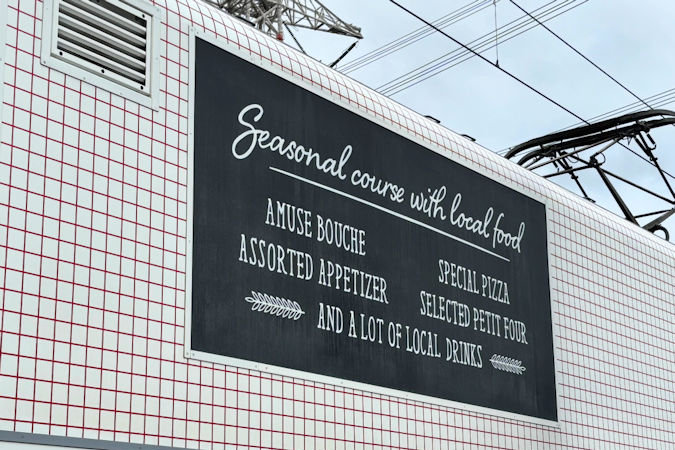 Seasonal course with local food
AMUSE BOUCHE
ASSORTED APPETIZER
SPECIAL PIZZA
SELECTED PETIT FOUR
AND A LOT OF LOCAL DRINKS